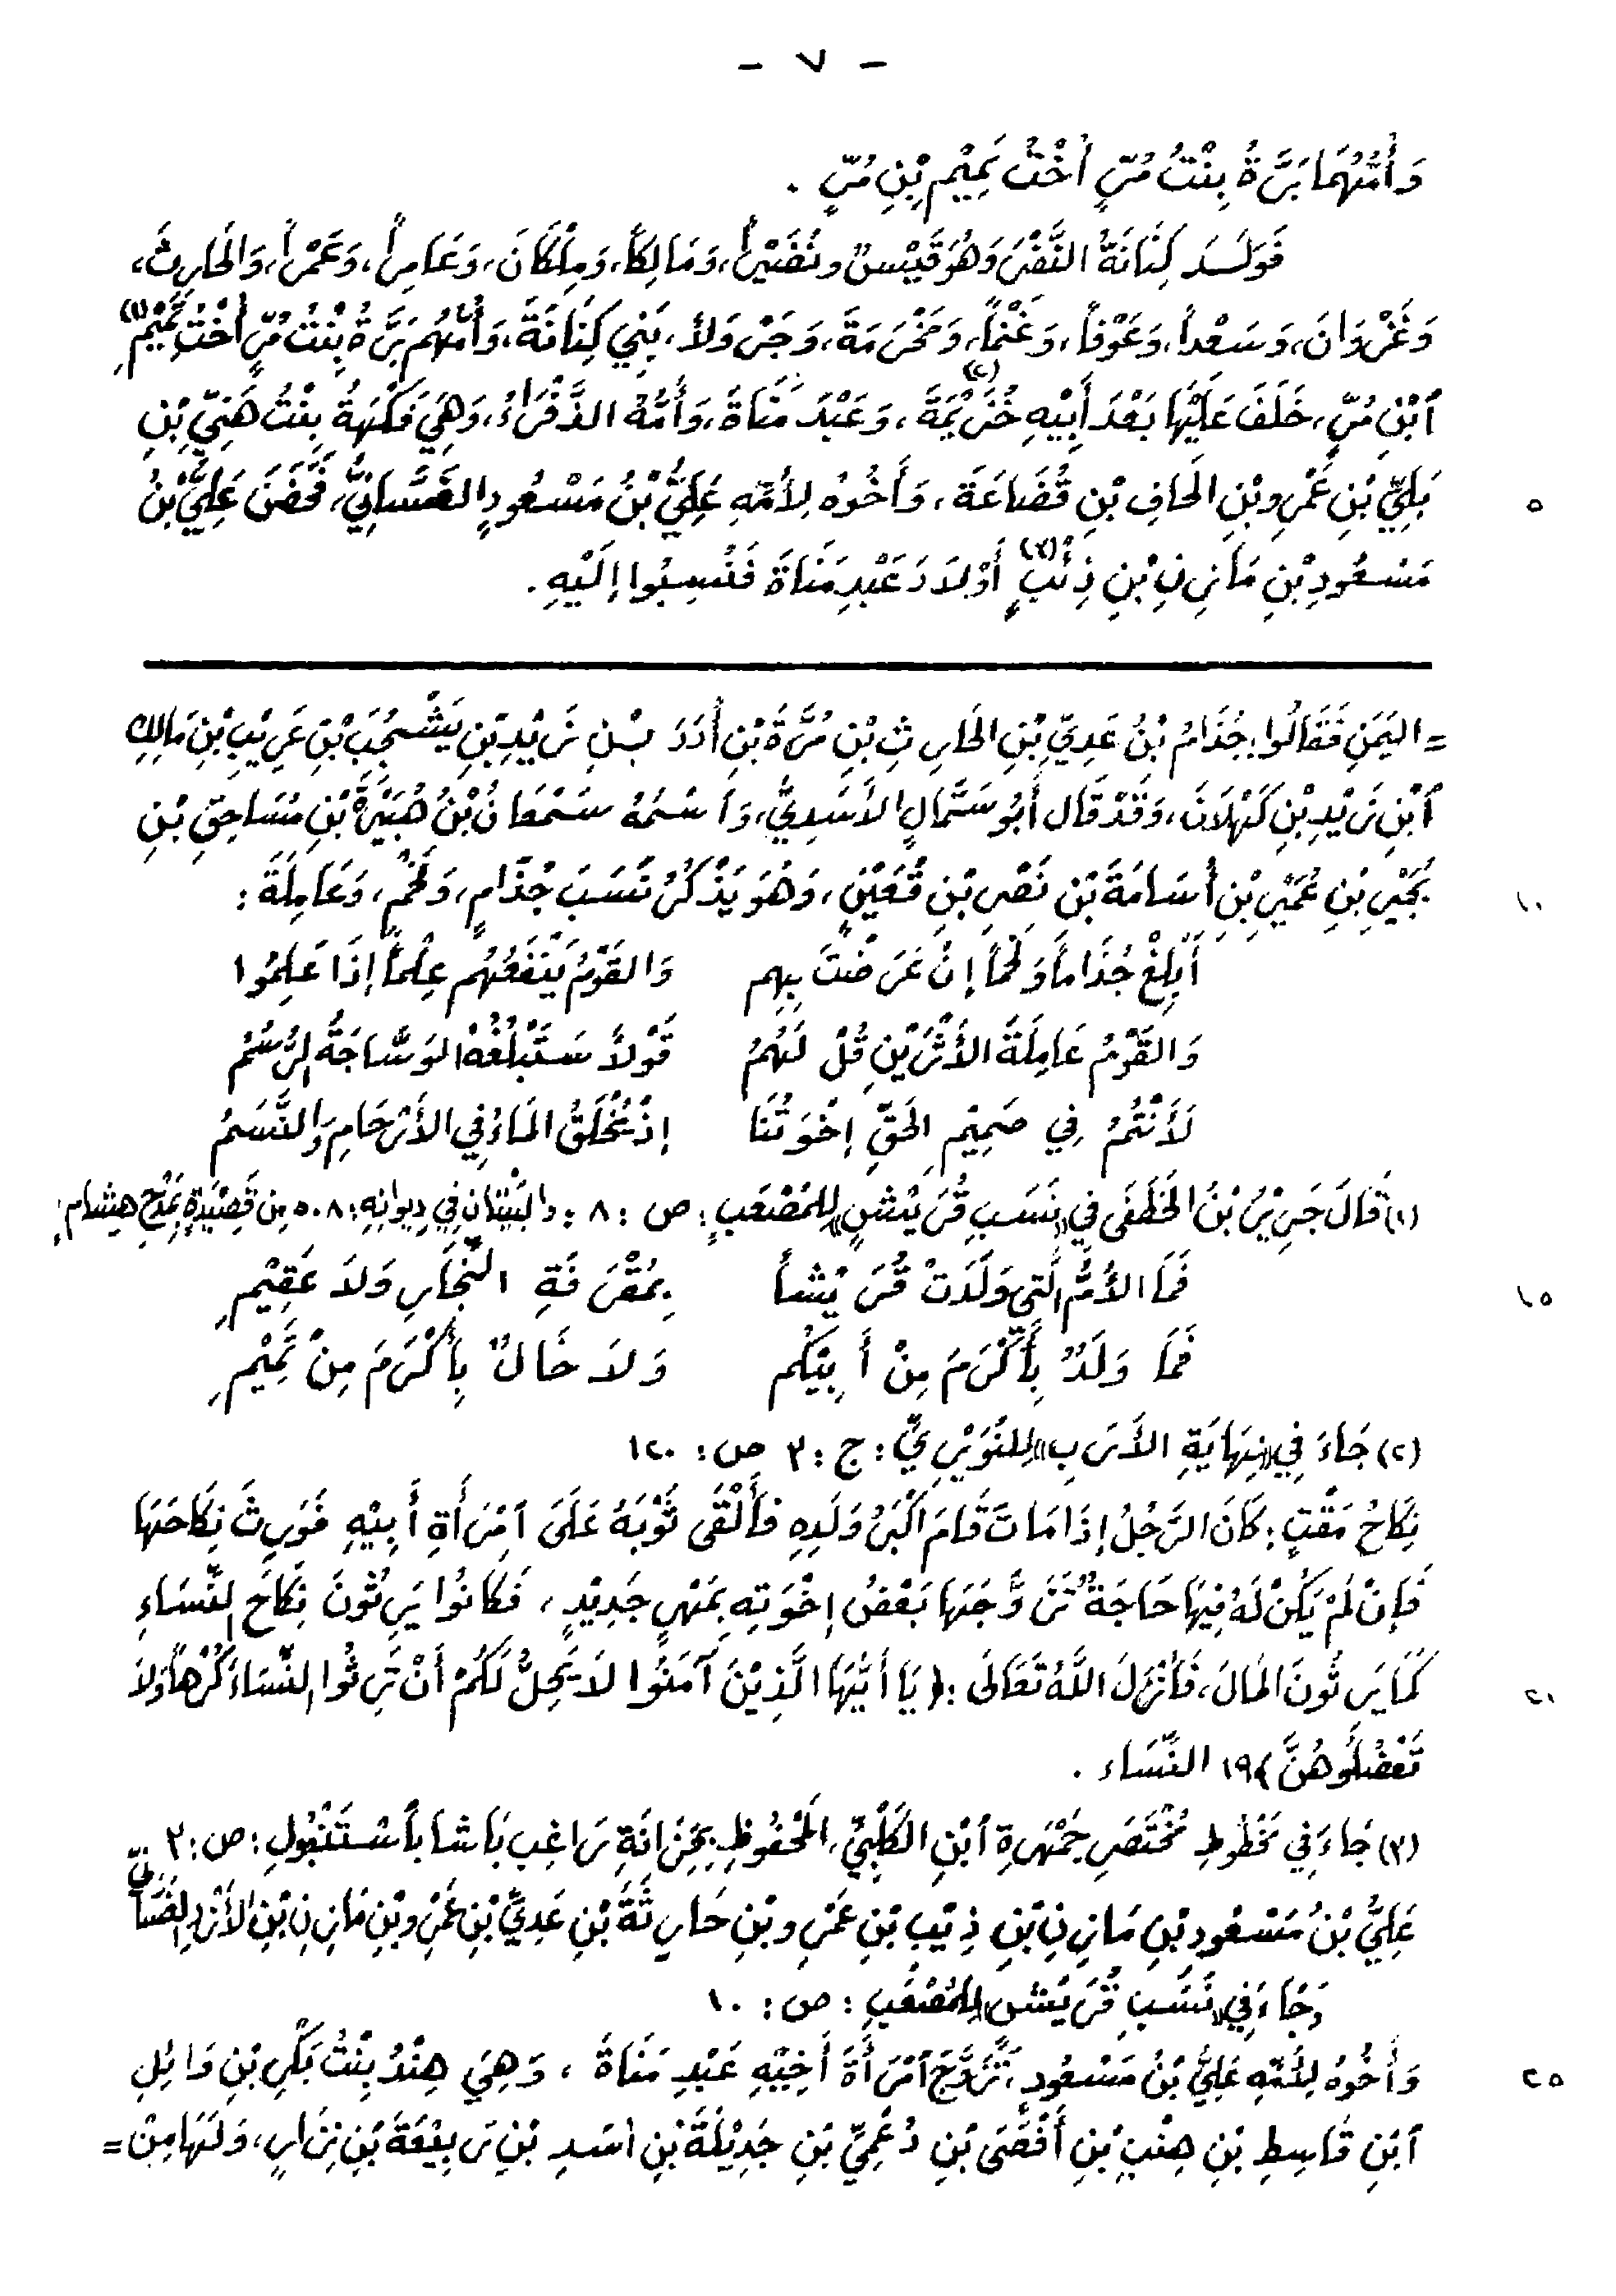 - ٧ -
وَأُمُّهُمَا بَرَّةُ بِنْتُ مُرٍّ أُخْتُ تَمِيْمِ بْنِ مُرٍّ .
فَوَلَدَ كِنَانَةُ النَّضْرَ وَهُوَ قَيْسٌ ونُضَيْراً، وَمَالِكاً، وَمِلْكَانَ، وَعَامِراً، وَعَمْراً، وَالحَارِثَ،
وَغَزْوَانَ، وَسَعْداً، وَعَوْفاً، وَغَنْماً، وَمَخْرَمَةَ، وَجَرْوَلاً، بَنِي كِنَانَةَ، وَأُمُّهُم بَرَّةُ بِنْتُ مُرٍّ أُخْتُ تَمِيْمِ (١)
ٱبْنِ مُرٍّ، خَلَفَ عَلَيْهَا بَعْدَ أَبِيْهِ خُزَيْمَةَ (٢)، وَعَبْدَ مَنَاةَ، وَأُمُّهُ الذَّفْرَاءُ، وَهِيَ فَكْهَةُ بِنْتُ هَنِيِّ بْنِ
بَلِيِّ بْنِ عَمْرِو بْنِ الحَافِ بْنِ قُضَاعَةَ، وَأَخُوهُ لِأُمِّهِ عَلِيُّ بْنُ مَسْعُودٍ الغَسَّانِيُّ، فَحَضَنَ عَلِيُّ بْنُ ٥
مَسْعُودِ بْنِ مَازِنِ بْنِ ذِئْبٍ (٣) أَوْلاَدَ عَبْدِ مَنَاةَ فَنُسِبُوا إِلَيْهِ .
= اليَمَنِ فَقَالُوا: جُذَامُ بْنُ عَدِيِّ بْنِ الحَارِثِ بْنِ مُرَّةَ بْنِ أُدَدَ بْنِ زَيْدِ بْنِ يَشْجُبَ بْنِ عَرِيْبِ بْنِ مَالِكِ
ٱبْنِ زَيْدِ بْنِ كَهْلاَنَ، وَقَدْ قَالَ أَبُو سَمَّالٍ الأَسَدِيُّ، وَاسْمُهُ سَمْعَانُ بْنُ هُبَيْرَةَ بْنِ مُسَاحِقِ بْنِ
بُجَيْرِ بْنِ عُمَيْرِ بْنِ أُسَامَةَ بْنِ نَصْرِ بْنِ قُعَيْنٍ، وَهُوَ يَذْكُرُ نَسَبَ جُذَامٍ، وَلَخْمٍ، وَعَامِلَةَ : ١٠
أَبْلِغْ جُذَاماً وَلَخْماً إِنْ عَرَضْتَ بِهِم وَالقَوْمُ يَنْفَعُهُم عِلْماً إِذَا عَلِمُوا
وَالقَوْمُ عَامِلَةَ الأَثْرَيْنِ قُلْ لَهُمُ قَوْلاً سَتَبْلُغُهُ الوَسَّاجَةُ الرُّسُمُ
لَأَنْتُمُ فِي صَمِيْمِ الحَقِّ إِخْوَتُنَا إِذْ يُخْلَقُ المَاءُ فِي الأَرْحَامِ وَالنَّسَمُ
(١) قَالَ جَرِيْرُ بْنُ الخَطَفَى فِي «نَسَبِ قُرَيْشٍ» لِلمُصْعَبِ: ص : ٨ : والبَيْتَانِ فِي دِيوانِهِ: ٥٠٨ مِن قَصِيْدَةٍ يَمْدَحُ هِشَام:
فَمَا الأُمُّ الَّتِي وَلَدَتْ قُرَيْشاً بِمُقْرَفَةِ النِّجَارِ وَلاَ عَقِيْمِ ١٥
فَمَا وَلَدٌ بِأَكْرَمَ مِنْ أَبِيْكُم وَلاَ خَالٌ بِأَكْرَمَ مِنْ تَمِيْمِ
(٢) جَاءَ فِي «نِهَايَةِ الأَرَبِ» لِلنُّوَيْرِيِّ : ج : ٣ ص : ١٢٠
نِكَاحُ مَقْتٍ : كَانَ الرَّجُلُ إِذَا مَاتَ قَامَ أَكْبَرُ وَلَدِهِ فَأَلْقَى ثَوْبَهُ عَلَى ٱمْرَأَةِ أَبِيْهِ فَوَرِثَ نِكَاحَهَا
فَإِنْ لَمْ يَكُنْ لَهُ فِيْهَا حَاجَةٌ تَزَوَّجَهَا بَعْضُ إِخْوَتِهِ بِمَهْرٍ جَدِيْدٍ، فَكَانُوا يَرِثُونَ نِكَاحَ النِّسَاءِ
كَمَا يَرِثُونَ المَالَ، فَأَنْزَلَ اللَّهُ تَعَالَى :﴿ يَا أَيُّهَا الَّذِيْنَ آمَنُوا لاَ يَحِلُّ لَكُمْ أَنْ تَرِثُوا النِّسَاءَ كُرْهاً وَلاَ ٢١
تَعْضُلُوهُنَّ ﴾ ١٩ النِّسَاء .
(٣) جَاءَ فِي مَخْطُوطِ مُخْتَصَرِ جَمْهَرَةِ ٱبْنِ الكَلْبِيِّ، المَحْفُوظِ بِخِزَانَةِ رَاغِب بَاشَا بِٱسْتَنْبُولِ : ص : ٣
عَلِيُّ بْنُ مَسْعُودِ بْنِ مَازِنِ بْنِ ذِيْبِ بْنِ عَمْرِو بْنِ حَارِثَةَ بْنِ عَدِيِّ بْنِ عَمْرِو بْنِ مَازِنِ بْنِ الأَزْدِ الغَسَّانِيُّ
وَجَاءَ فِي «نَسَبِ قُرَيْشٍ» لِلمُصْعَبِ : ص : ١٠
وَأَخُوهُ لِأُمِّهِ عَلِيُّ بْنُ مَسْعُودٍ، تَزَوَّجَ ٱمْرَأَةَ أَخِيْهِ عَبْدِ مَنَاةَ، وَهِيَ هِنْدُ بِنْتُ بَكْرِ بْنِ وَائِلِ ٢٥
ٱبْنِ قَاسِطِ بْنِ هِنْبِ بْنِ أَفْصَى بْنِ دُعْمِيِّ بْنِ جَدِيْلَةَ بْنِ أَسَدِ بْنِ رَبِيْعَةَ بْنِ نِزَارٍ، وَلَهَا مِنْ =